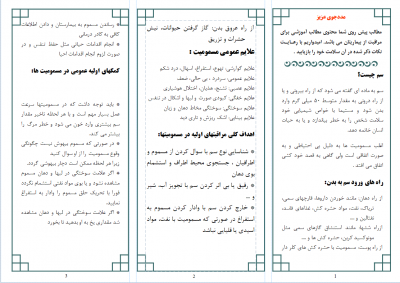 مددجوی عزیز
مطالب پیش روی شما محتوی مطالب آموزشی برای
مراقبت از بیماریتان می باشد. امیدواریم با رضایت
نکات ذکر شده در آن سلامت خود را بازیابید.
سم چیست؟
سم به ماده ای گفته می شود که از راه بیرونی و یا
از راه درونی به مقدار متوسط ۵۰ میلی گرم وارد
بدن شود و بستیما یا خواص شیمیایی خود
سلامت شخص را به خطر بیاندازد و یا به حیات
انسان خاتمه دهد.
اغلب مسمومیت ها به دلیل بی احتیاطی و به
صورت اتفاقی است ولی گاهی به قصد خود کشی
اتفاق می افتد.
راه های ورود سم به بدن:
از راه دهان: مانند خوردن داروها، قارچهای سمی،
تریاک، نفت، مواد حشره کش، غذاهای فاسد،
نفتالین و ...
ازراه تنفس: مانند استنشاق گازهای سمی مثل
مونوکسید کربن، حشره کش ها و ...
از راه پوست: مسمومیت با حشره کش های کار دار
1
از راه عروق بدن: گاز گرفتن حیوانات، نیش
حشرات و تزریق
علایم عمومی مسمومیت :
علایم گوارشی: تهوع، استفراغ، اسهال، درد شکم
علایم عمومی: سردرد، بی حالی، ضعف
علایم عصبی: تشنج، هذیان، اختلال هوشیاری
علایم خفگی: کبودی صورت و لبها و اشکال در تنفس
علایم سوختگی: سوختگی مخاط دهان و زبان
علایم بینایی: اشک ریزش و تاری دید
اهداف کلی مراقبتهای اولیه در مسمومیتها:
شناسایی نوع سم با سوال کردن از مسموم و
اطرافیان ، جستجوی محیط اطراف و استشمام
بوی دهان
رقیق یا بی اثر کردن سم با تجویز آب، شیر
و ...
خارج کردن سم و یا وادار کردن مسموم به
استفراغ در صورتی که مسمومیت با نفت، مواد
اسیدی یا قلیایی نباشد
2
رساندن مسموم به بیمارستان و دادن اطلاعات
کافی به کادر درمانی
انجام اقدامات حیاتی مثل حفظ تنفس و در
صورت لزوم انجام اقدامات احیا
کمکهای اولیه عمومی در مسمومیت ها:
باید توجه داشت که در مسمومیتها سرعت
عمل بسیار مهم است و با هر لحظه تاخیر مقدار
سم بیشتری وارد خون می شود و خطر مرگ را
بیشتر می کند.
در صورتی که مسموم بیهوش نیست چگونگی
وقوع مسمومیت را از او سوال کنید.
زیرا هر لحظه ممکن است دچار بیهوشی گردد.
اگر علامت سوختگی در لبها و دهان مسموم
مشاهده نشود و یا بوی مواد نفتی استشمام نگردد
فورا با تحریک حلق مسموم را وادار به استفراغ
نمایید.
اگر علامت سوختگی در لبها و دهان مشاهده
شد مقداری یخ به او بدهید تا بخورد
3